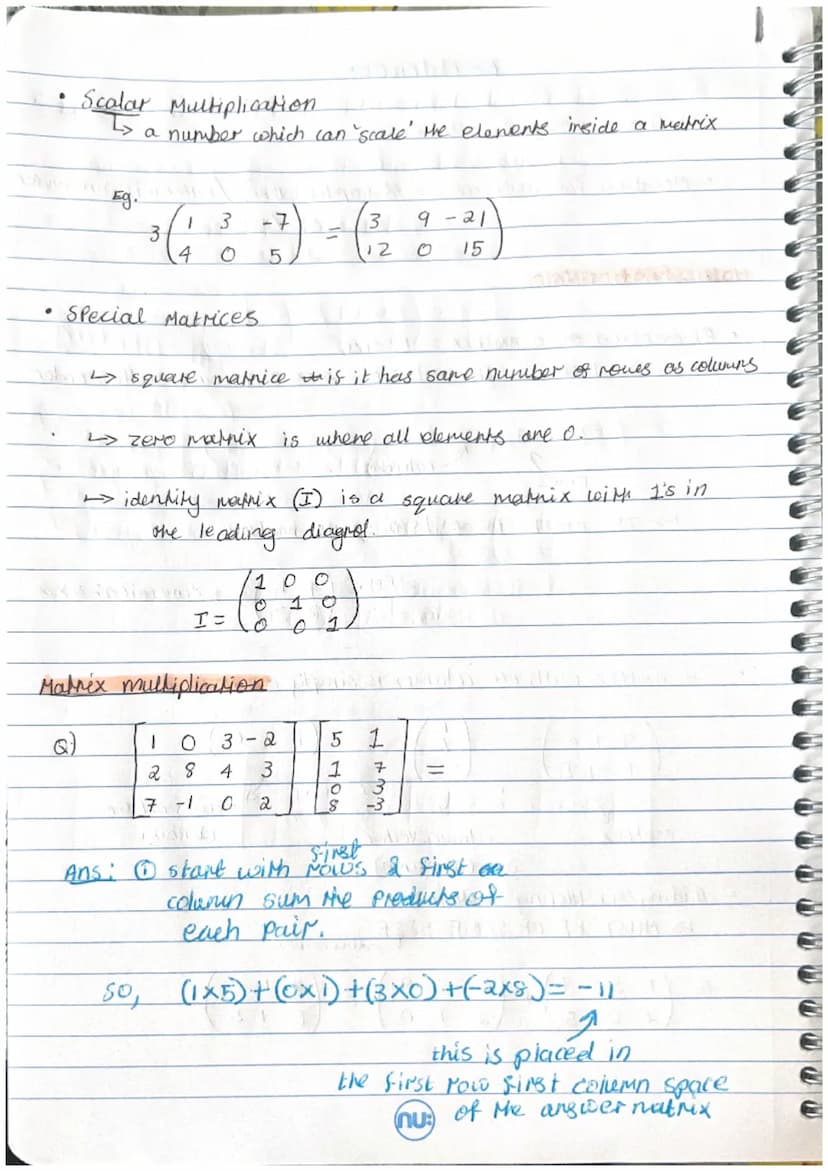 • Scalar Multiplication
↳ a number which can 'scale' the elements inside a matrix
Eg.
3 ( 1 3 -7 ) = ( 3 9 -21 )
( 4 0 5 ) ( 12 0 15 )
• Special Matrices
↳ square matrice is it has same number of rows as columns
↳ zero matrix is where all elements are 0.
↳ identity matrix (I) is a square matrix with 1's in
the leading diagnol.
( 1 0 0 )
( 0 1 0 )
I = ( 0 0 1 )
Matrix multiplication
Q) [ 1 0 3 -2 ] [ 5 1 ]
[ 2 8 4 3 ] [ 1 7 ] =
[ 0 3 ]
[ 7 -1 0 2 ] [ 8 -3 ]
first
Ans: ① start with rows & first
column sum the products of
each pair.
so, (1x5)+(0x1)+(3x0)+(-2x8)= -11
this is placed in
the first row first column space
of the answer matrix
nu: